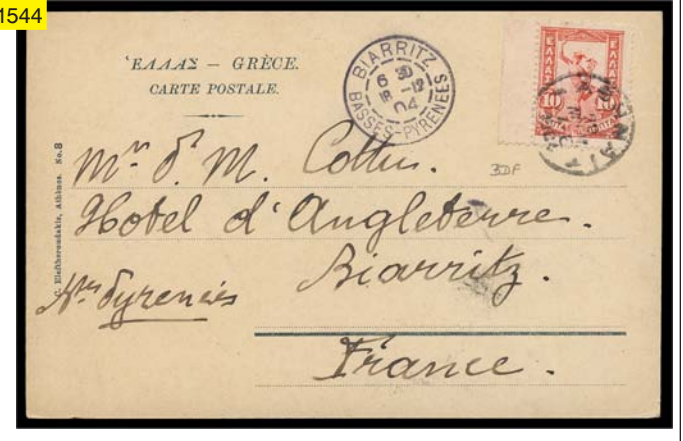 1544
ἙΛΛΑΣ – GRÈCE.
CARTE POSTALE.
BIARRITZ
6 30
18 -12
04
BASSES-PYRENEES
ΕΛΛΑΣ ΕΛΛΑΣ
10 10
C. Eleftheroudakis, Athènes. No. 8
3DF
M. Cottu.
Hotel d'Angleterre.
Biarritz.
Pyrenées
France.